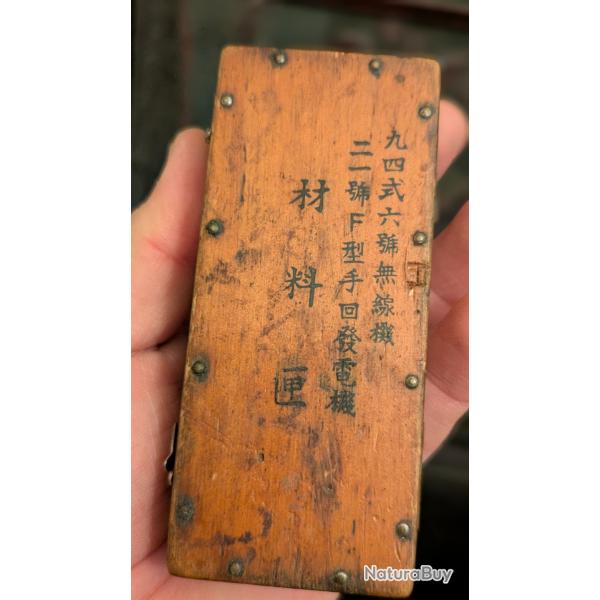 九四式六號無線機
二一號F型手回發電機
材料匣
NaturaBuy